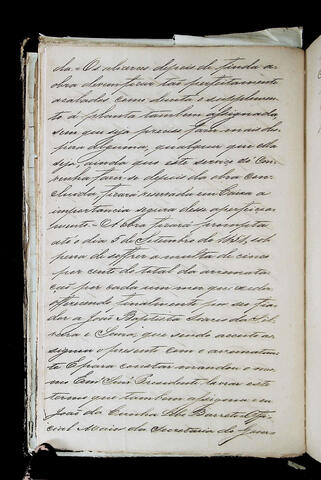 da. Os alicerces depois de finda a
obra deverão ficar tão perfeitamente
acabados como dinta e supplemen
to á planta tambem assignada
sem que seja preciso fazer mais des
peza alguma, qualquer que ella
seja, ainda que este serviço de Con
venha fazer-se depois da obra con
cluida, ficará reservada em Caixa a
importancia segura desse aperfeiçoa
mento. A obra ficará prompta
até o dia 7 de Setembro de sob
pena de soffrer a multa de cinco
por cento do total da arremata
ção por cada um mez que exceder
offerecendo finalmente por seu fia
dor a João Baptista
e que sendo acceito as
signa o presente com o arrematan
te E para constar mandou o mes
mo Em Senr Presidente lavrar este
termo que tambem assigna e eu
João da Cunha Lobo Barreto Offi
cial Maior da Secretaria do Gover